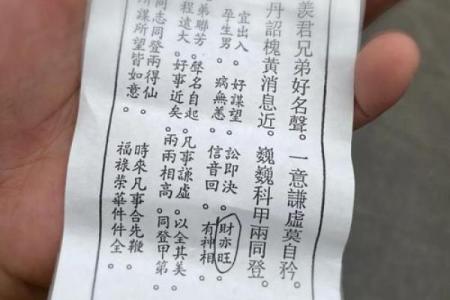 羨君兄弟好名聲。一意謙虛莫自矜。
丹詔槐黃消息近。巍巍科甲兩同登。
宜出入。好謀望。訟即決。財亦旺。
孕生男。病無恙。信音回。有神相。
弟聯芳。聲名自起。凡事謙虛。以全其美。
程遠大。好事近矣。兩兩相高。同登甲第。
同志同登兩得仙。時來凡事合先鞭。
所謀所望皆如意。福祿榮華件件全。